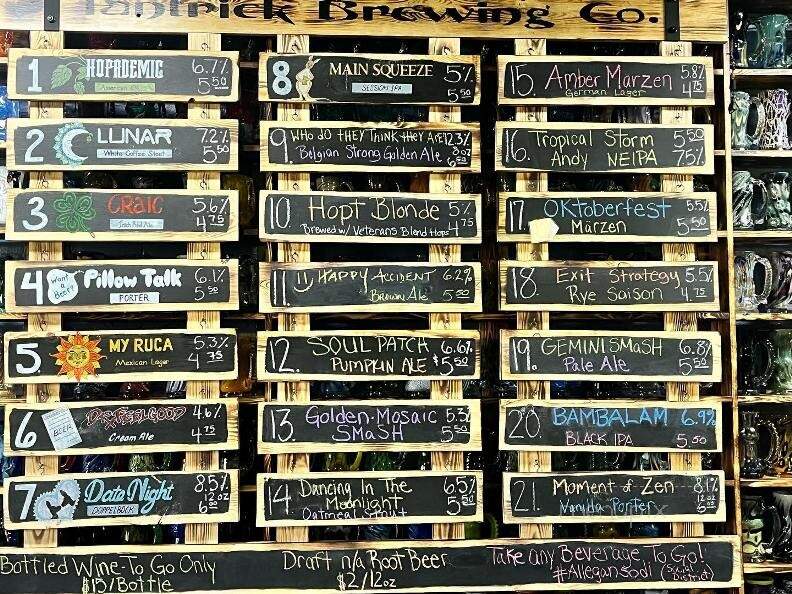 Tantrick Brewing Co.
1 HOPRDEMIC 6.7%
5.50
2 LUNAR 7.2%
White Coffee Stout 5.50
3 CRAIC 5.6%
Irish Red Ale 4.75
4 Want a Beer? Pillow Talk 6.1%
PORTER 5.50
5 MY RUCA 5.3%
Mexican Lager 4.75
6 BEER DR. FEELGOOD 4.6%
Cream Ale 4.75
7 Date Night 8.5%
DOPPELBOCK 12 oz
6.50
8 MAIN SQUEEZE 5%
SESSION IPA 5.50
9. WHO DO THEY THINK THEY ARE 12.3%
Belgian Strong Golden Ale 8oz
10. Hopt Blonde 5%
Brewed w/ Veterans Blend Hops 4.75
11. HAPPY ACCIDENT 6.2%
Brown Ale 5.50
12. SOUL PATCH 6.6%
PUMPKIN ALE $5.50
13. Golden Mosaic 5.3%
SMaSH 5.50
14. Dancing In The 6.5%
Moonlight 5.50
Oatmeal Stout
15. Amber Marzen 5.8%
German Lager 4.75
16. Tropical Storm 5.50
Andy NEIPA 7.5%
17. OKtoberfest 5.5%
Märzen 5.50
18. Exit Strategy 5.5%
Rye Saison 4.75
19. GEMINI SMaSH 6.8%
Pale Ale 5.50
20. BAMBALAM 6.9%
BLACK IPA 5.50
21. Moment of Zen 8.1%
Vanilla Porter 12 oz
Bottled Wine-To Go Only
$15/Bottle
Draft n/a Root Beer
$2/12oz
Take any Beverage To Go!
#AlleganSodi (Social District)